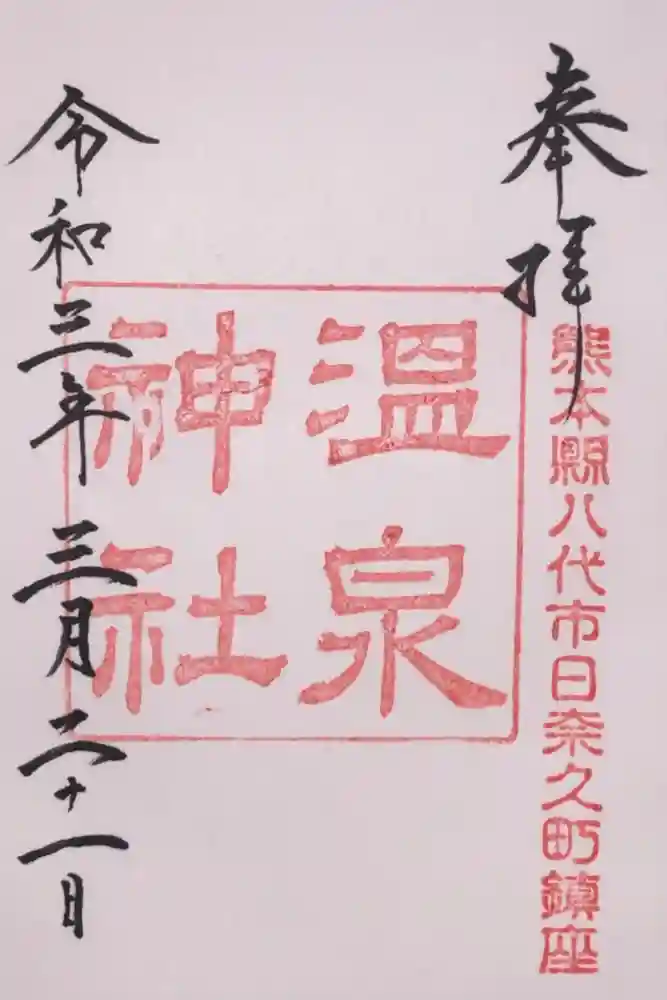 奉拝
熊本縣八代市日奈久町鎮座
温泉
神社
令和三年三月二十一日